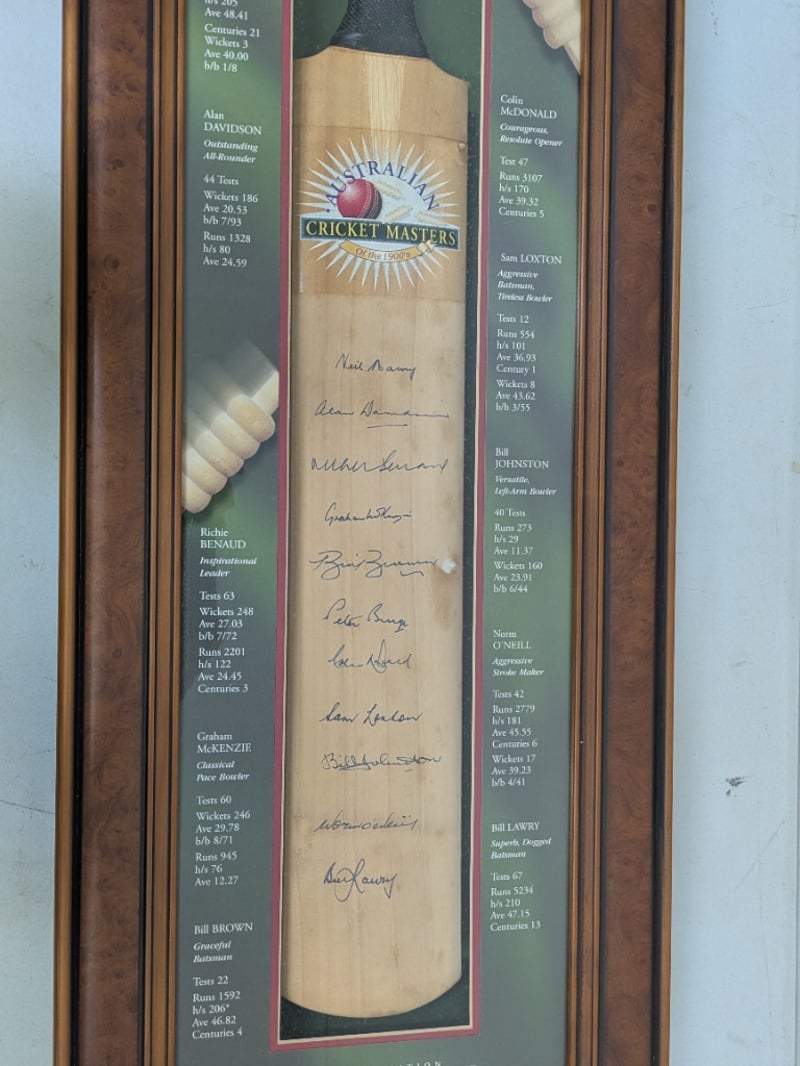 h/s 205
Ave 48.41
Centuries 21
Wickets 3
Ave 40.00
b/b 1/8
Alan
DAVIDSON
Outstanding
All-Rounder
44 Tests
Wickets 186
Ave 20.53
b/b 7/93
Runs 1328
h/s 80
Ave 24.59
Richie
BENAUD
Inspirational
Leader
Tests 63
Wickets 248
Ave 27.03
b/b 7/72
Runs 2201
h/s 122
Ave 24.45
Centuries 3
Graham
McKENZIE
Classical
Pace Bowler
Tests 60
Wickets 246
Ave 29.78
b/b 8/71
Runs 945
h/s 76
Ave 12.27
Bill BROWN
Graceful
Batsman
Tests 22
Runs 1592
h/s 206*
Ave 46.82
Centuries 4
AUSTRALIAN
CRICKET MASTERS
Of the 1900's
Neil Harvey
Alan Davidson
Richie Benaud
Graham McKenzie
Bill Brown
Peter Burge
Colin McDonald
Sam Loxton
Bill Johnston
Norm O'Neill
Bill Lawry
Colin
McDONALD
Courageous,
Resolute Opener
Test 47
Runs 3107
h/s 170
Ave 39.32
Centuries 5
Sam LOXTON
Aggressive
Batsman,
Tireless Bowler
Tests 12
Runs 554
h/s 101
Ave 36.93
Century 1
Wickets 8
Ave 43.62
b/b 3/55
Bill
JOHNSTON
Versatile,
Left-Arm Bowler
40 Tests
Runs 273
h/s 29
Ave 11.37
Wickets 160
Ave 23.91
b/b 6/44
Norm
O'NEILL
Aggressive
Stroke Maker
Tests 42
Runs 2779
h/s 181
Ave 45.55
Centuries 6
Wickets 17
Ave 39.23
b/b 4/41
Bill LAWRY
Superb, Dogged
Batsman
Tests 67
Runs 5234
h/s 210
Ave 47.15
Centuries 13